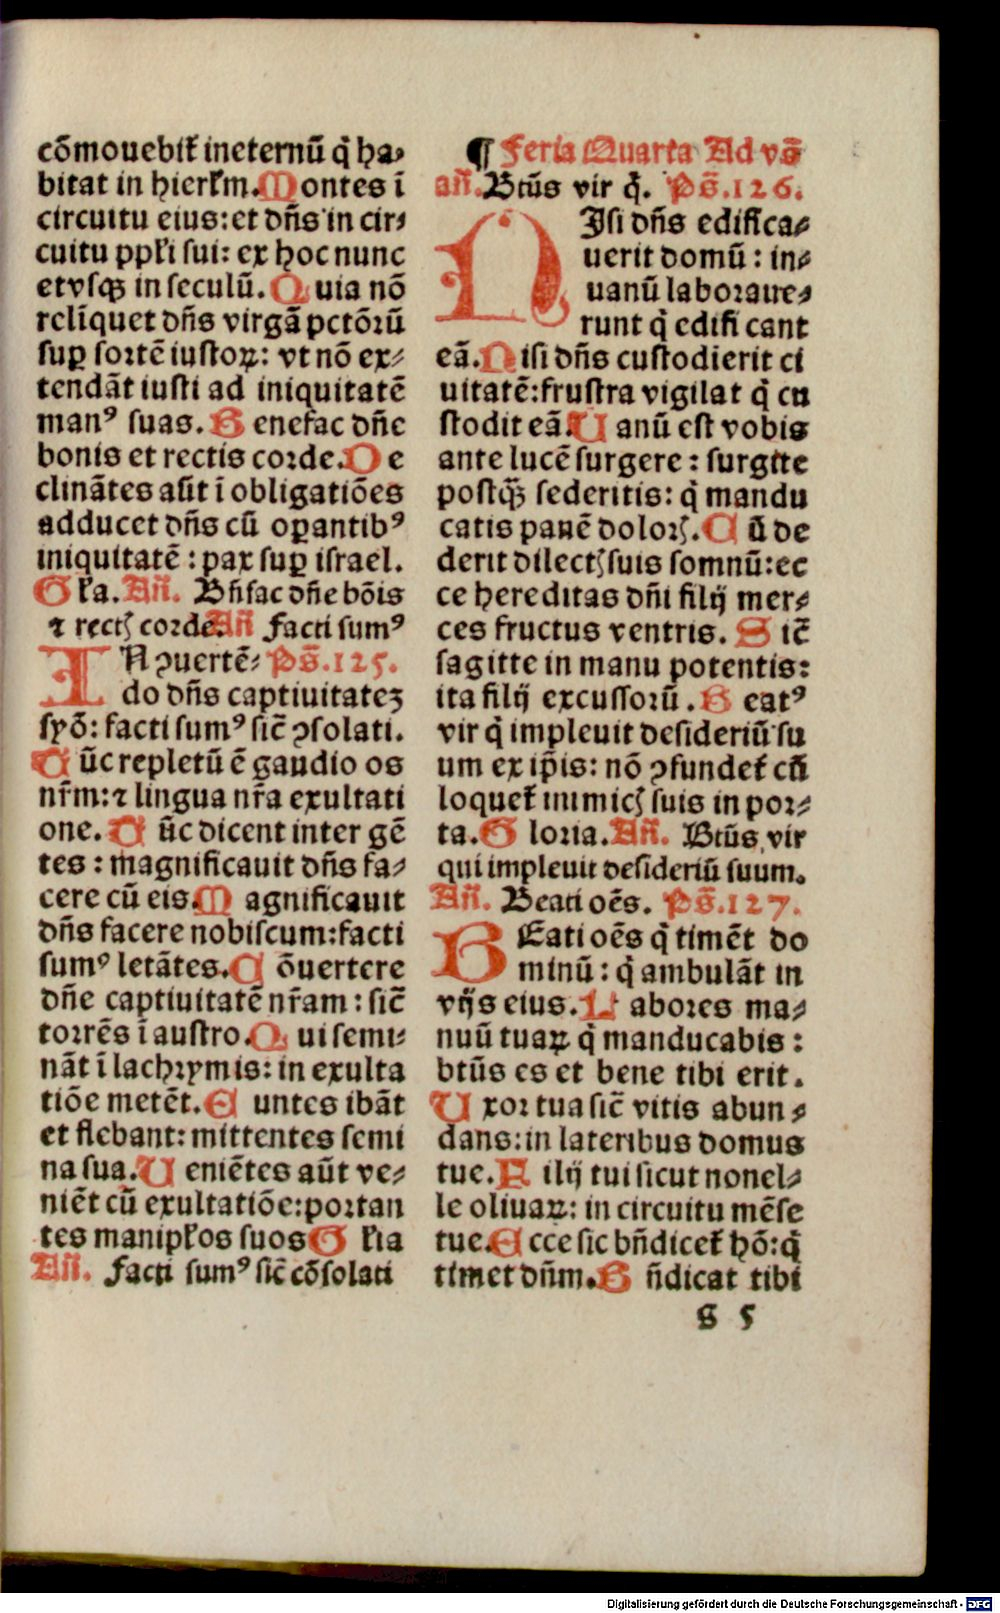 cōmouebit̃ ineternū q̇ ha-
bitat in hierłm. Montes ī
circuitu eius: et dñs in cir-
cuitu ppłi sui: ex hoc nunc
etvsqꝫ in seculū. Quia nō
relīquet dñs virgā pctōrū
suꝑ sortē iustoꝝ: vt nō ex-
tendāt iusti ad iniquitatē
manꝰ suas. Benefac dñe
bonis et rectis corde. De
clinātes aūt ī obligatiōes
adducet dñs cū oꝑantibꝰ
iniquitatē: pax suꝑ israel.
Gła. Añ. Bñfac dñe bōis
⁊ rectꝭ corde. Añ Facti sumꝰ
IN ꝯuertē- Ps̄. 125.
do dñs captiuitateꝫ
syō: facti sumꝰ sic̄ ꝯsolati.
Tūc repletū ē gaudio os
nr̄m: ⁊ lingua nr̄a exultati
one. Tūc dicent inter gē
tes: magnificauit dñs fa-
cere cū eis. Magnificauit
dñs facere nobiscum: facti
sumꝰ letātes. Cōuertere
dñe captiuitatē nr̄am: sic̄
torrēs ī austro. Qui semi-
nāt ī lachrymis: in exulta
tiōe metēt. Euntes ibāt
et flebant: mittentes semi
na sua. Ueniētes aūt ve-
niēt cū exultatiōe: portan
tes manipłos suos Głia
Añ. Facti sumꝰ sic̄ cōsolati
¶ Feria Quarta Ad vs̄
añ. Btūs vir q̇. Ps̄. 126.
NIsi dñs edifica-
uerit domū: in-
uanū laboraue-
runt q̇ edificant
eā. Nisi dñs custodierit ci
uitatē: frustra vigilat q̇ cu
stodit eā. Uanū est vobis
ante lucē surgere: surgite
postq̄ꝫ sederitis: q̇ mandu
catis panē dolorꝭ. Cū de
derit dilectꝭ suis somnū: ec
ce hereditas dñi filij mer-
ces fructus ventris. Sic̄
sagitte in manu potentis:
ita filij excussorū. Beatꝰ
vir q̇ impleuit desideriū su
um ex ip̄is: nō ꝯfundet̃ cū
loquet̃ inimicꝭ suis in por-
ta. Gloria. Añ. Btūs vir
qui impleuit desideriū suum.
Añ. Beati oēs. Ps̄. 127.
BEati oēs q̇ timēt do
minū: q̇ ambulāt in
vijs eius. Labores ma-
nuū tuaꝝ q̇ manducabis:
btūs es et bene tibi erit.
Uxor tua sic̄ vitis abun-
dans: in lateribus domus
tue. Filij tui sicut nouel-
le oliuaꝝ: in circuitu mēse
tue. Ecce sic bñdicet̃ hō: q̇
timet dñm. Bñdicat tibi
S 5
Digitalisierung gefördert durch die Deutsche Forschungsgemeinschaft - DFG